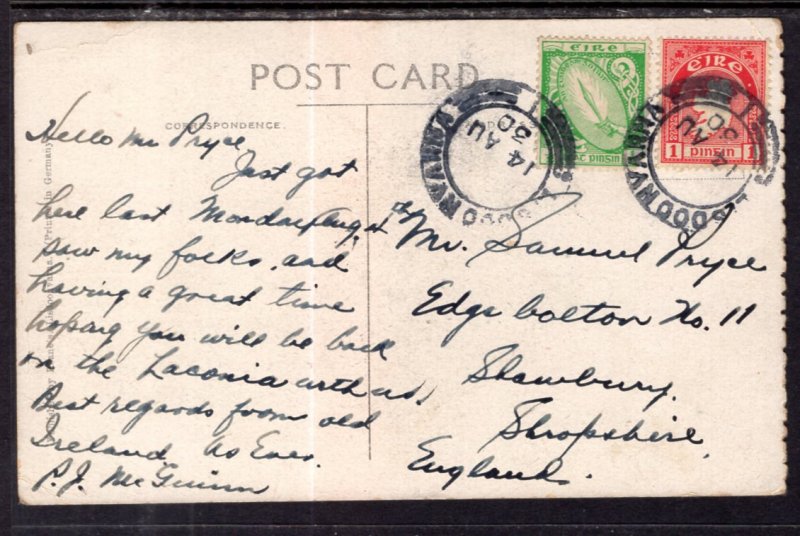 POST CARD
CORRESPONDENCE.
Hello Mr Pryce
Just got
here last Monday Aug 4th
saw my folks, and
having a great time
hoping you will be back
on the Laconia with us,
Best regards from old
Ireland as Ever.
P.J. McGuinn
Mr. Samuel Pryce
Edge bolton No. 11
Shawbury.
Shropshire,
England.
éire
PINSIN
éire
1 PINSIN 1
14 AU
30
14 AU
30
Printed in Germany